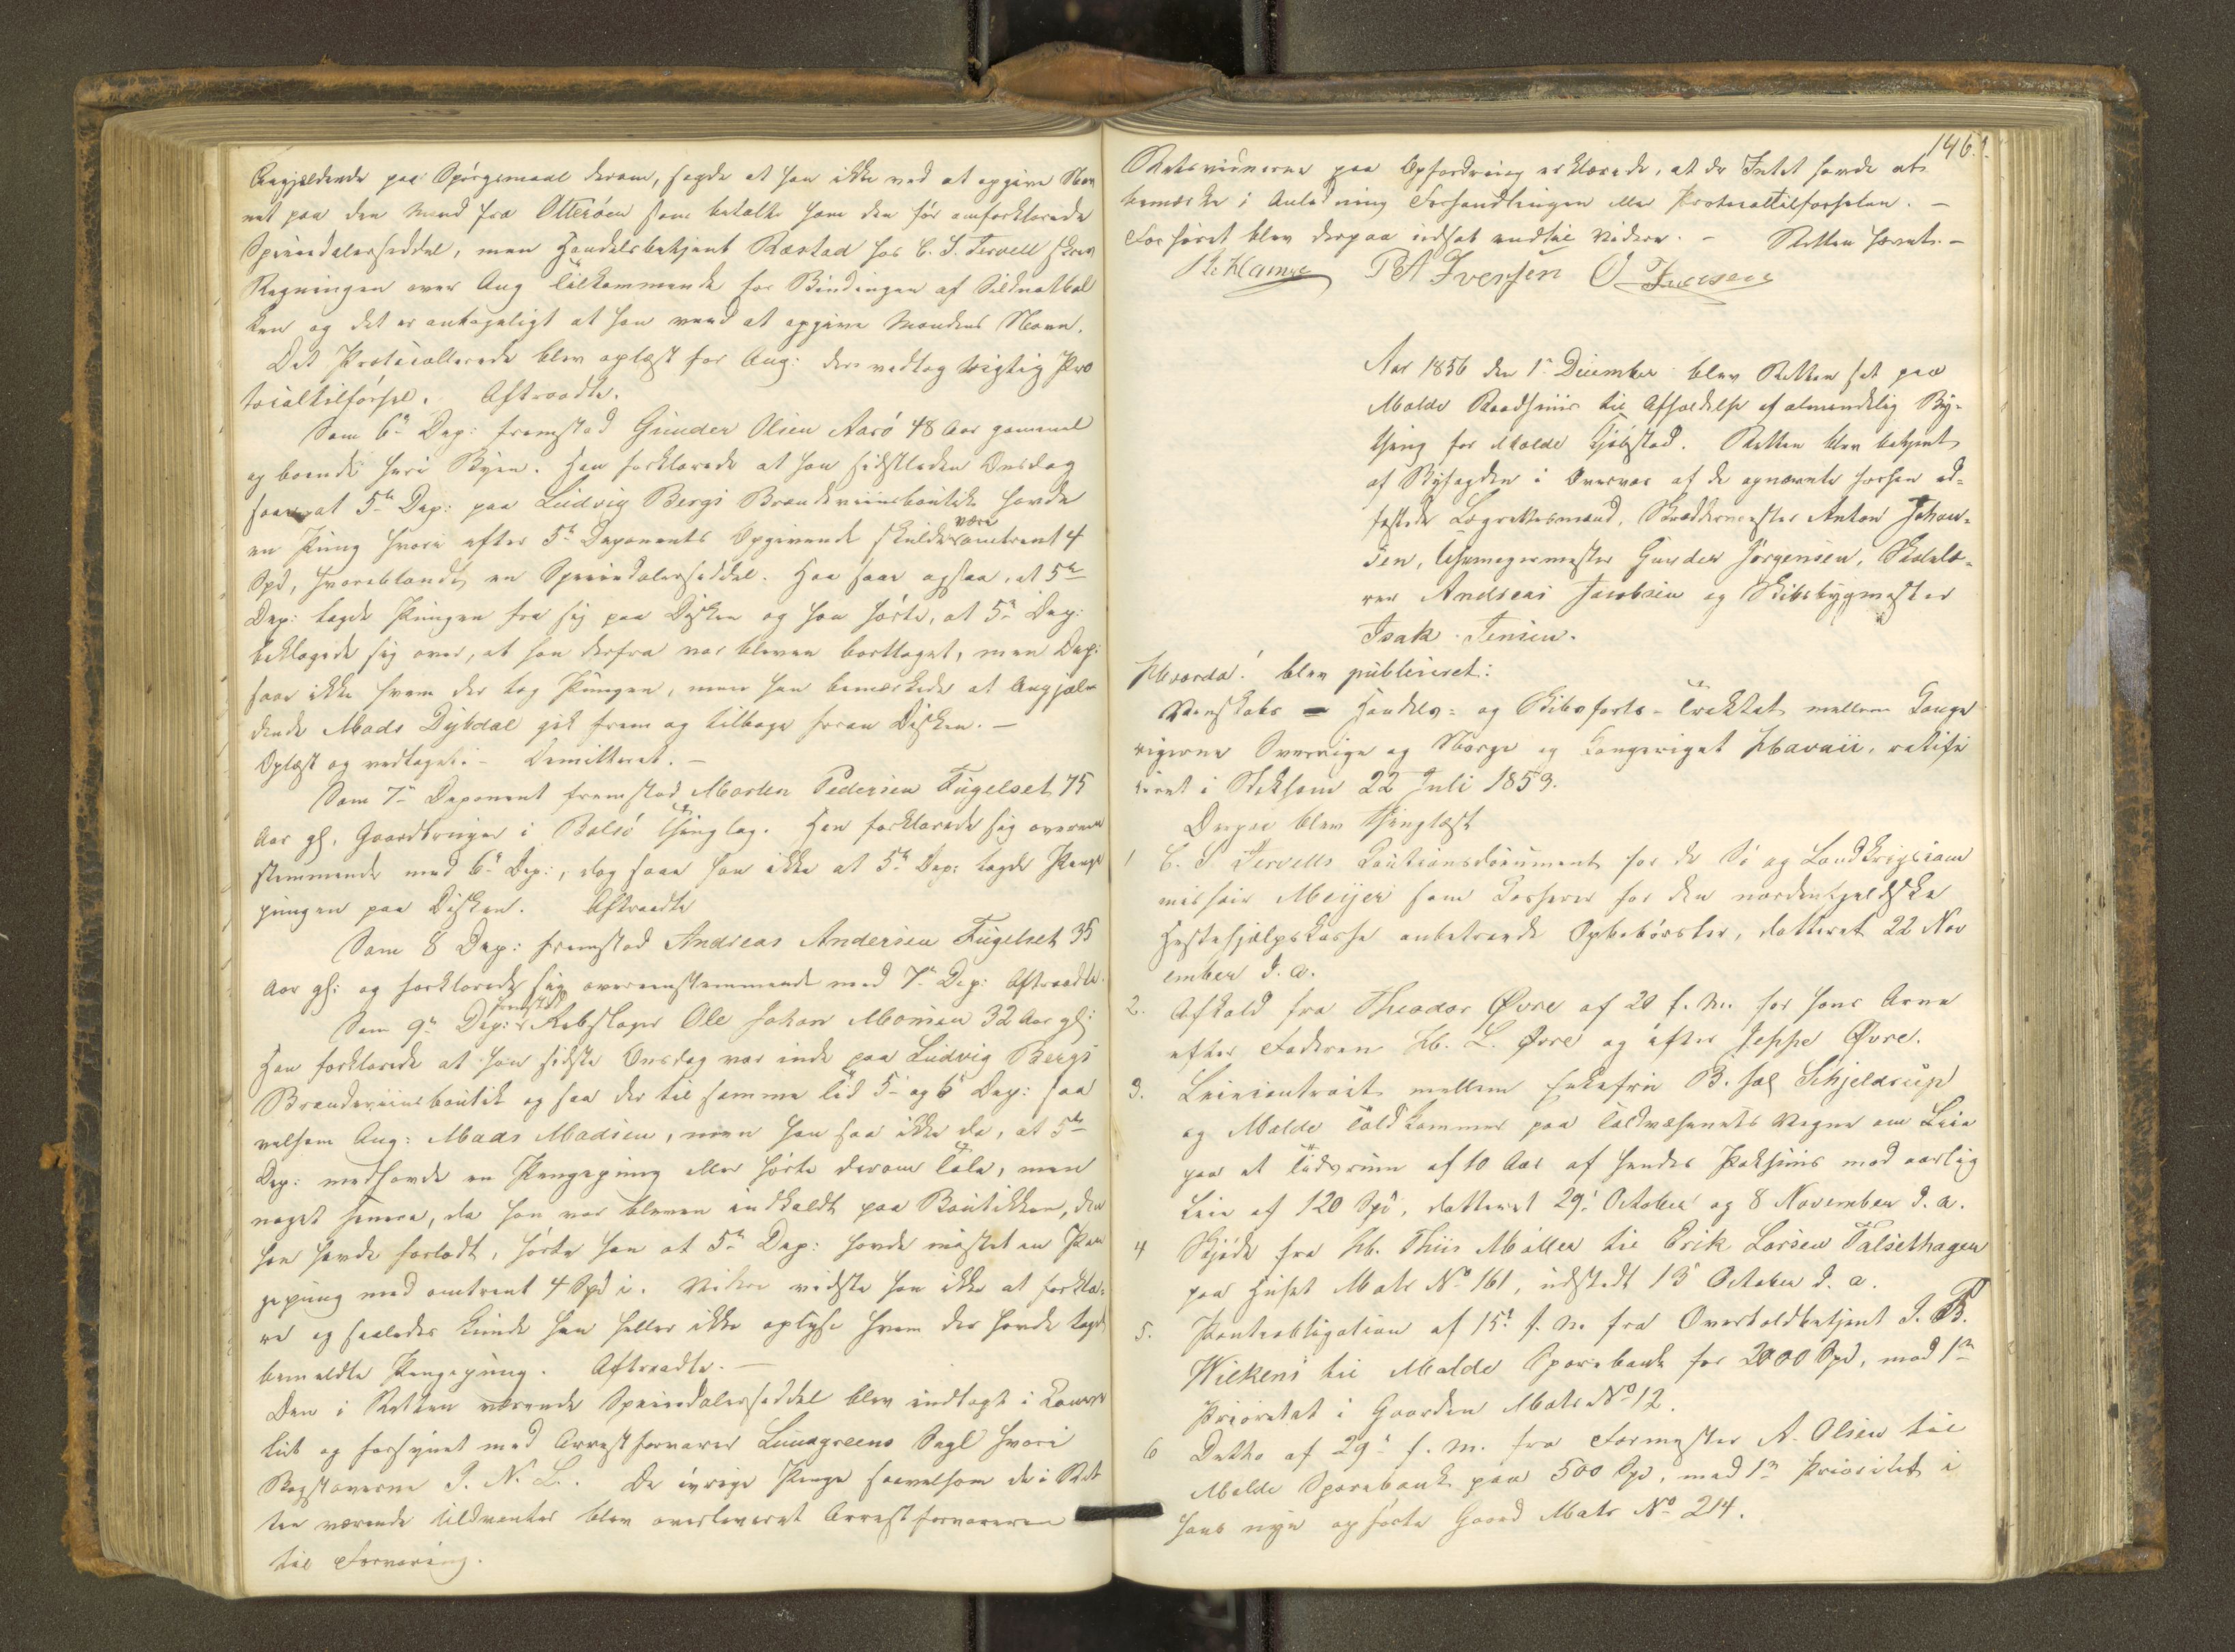 Angjeldende paa Spörgsmaal derom, sagde at han ikke ved at opgive Nav
net paa den Mand fra Otteröen som betalte ham den før omforklarede
Speciedalerseddel, men Handelsbetjent Ræstad hos C. S. Fervell skrev
Regningen over Ang tilkommende for Bindingen af Sildnotbol
ken og det er antageligt at han veed at opgive Mandens Navn.
Det Protocollerede blev oplæst for Ang: der vedtog rigtig Pro
tocaltilförsel. Aftraadte.
Som 6te Dep: fremstod Gunder Olsen Aarö 48 Aar gammel
og boende her i Byen. Han forklarede at han sidstleden Onsdag
saae at 5te Dep: paa Ludvig Bergs Brændeviinsboutik havde
en Pung hvori efter 5te Deponents Opgivende skulde være omtrent 4
Spd, hvoriblandt en Speciedalerseddel. Han saae ogsaa, at 5te
Dep: lagde Pungen fra sig paa Disken og han hörte, at 5te Dep:
beklagede sig over, at han derfra var bleven borttaget, men Dep:
saae ikke hvem der tog Pungen, men han bemærkede at Angjæl
dende Mads Dybdal gik frem og tilbage foran Disken. –
Oplæst og vedtaget. – Demitteret. –
Som 7de Deponent fremstod Morten Pedersen Fugelset 75
Aar gl., Gaardbruger i Bolsö Thinglag. Han forklarede sig overeens
stemmende med 6te Dep:, dog saae han ikke at 5te Dep: lagde Penge
pungen paa Disken. Aftraadte
Som 8 Dep: fremstod Andreas Andersen Fugelset 35
Aar gl: og forklarede sig overeensstemmende med 7de Dep: Aftraadte.
Som 9de Dep: fremstod Rebslager Ole Johan Monsen 32 Aar gl:
Han forklarede at han sidste Onsdag var inde paa Ludvig Bergs
Brændeviinsboutik og saa der til samme Tid 5te og 6te Dep: saa
velsom Ang: Mads Madsen, men han saa ikke da, at 5te
Dep: medhavde en Pengepung eller hörte derom Tale, men
noget senere, da han var bleven indkaldt paa Boutikken, den
han havde forladt, hörte han at 5te Dep: havde mistet en Pen
gepung med omtrent 4 Spd i. Videre vidste han ikke at forkla=
re og saaledes kunde han heller ikke oplyse hvem der havde taget
bemeldte Pengepung. Aftraadte. –
Den i Retten værende Speciedalerseddel blev indlagt i Couver
tüt og forsynet med Arrestforvarer Lundgreens Segl hvori
Bogstaverne J. N. L. De övrige Penge saavelsom de i Ret
ten værende Uldvanter blev overleveret Arrestforvareren
til Forvaring.
146.
Retsvidnerne paa Opfordring erklærede, at de Intet havde at
bemærke i Anledning Forhandlingen eller Protocoltilforselen. –
Forhöret blev derpaa udsat indtil Videre. – Retten hævet. –
P A Iversen O Iversen
Aar 1856 den 1te December blev Retten sat paa
Molde Raadhuus til Afholdelse af almindelig By=
thing for Molde Kjöbstad. Retten blev betjent
af Byfogden i Overvær af de opnævnte forhen ed=
fæstede Lagrettesmænd, Skræddermester Anton Johan=
sen, Uhrmagermester Gunder Jörgensen, Skolelæ=
rer Andreas Jacobsen og Skibsbygmester
Isak Jensen.
Hvorda! blev publiceret:
Venskabs – Handels= og Skibsfarts-Tractat mellem Konge
rigerne Sverrige og Norge og Kongeriget Havaii, ratifi
ceret i Stokholm 22 Juli 1853.
Derpaa blev thinglæst
1 C. S. Fervells Cautionsdocument for de Sö og Landkrigscom
missair Meijer som Casserer for den nordenfjeldske
Hestehjælpskasse anbetroede Opbebörsler, datteret 22 Nov
ember d. a.
2. Afkald fra Theodor Øvre af 20 f. M. for hans Arv
efter Faderen H. L. Øvre og efter Jeppe Øvre.
3. Leiecontract mellem Enkefru B. sal Schjeldrup
og Molde Toldkammer paa Toldvæsenets Vegne om Leie
paa et Tidsrum af 10 Aar af hendes Pakhuus mod aarlig
Leie af 120 Spd, datteret 29. October og 8 November d. a.
4 Skjöde fra H. Thiis Möller til Erik Larsen Talsethagen
paa Huset Matr No 161, udstedt 13 October d. a.
5. Panteobligation af 15de f. M. fra Overtoldbetjent J. B.
Wilkens til Molde Sparebank for 2000 Spd, med 1ste
Prioritet i Gaarden Matr No 12.
6 Ditto af 29de f. M. fra Farmester A. Olsen til
Molde Sparebank paa 500 Spd, med 1ste Prioritet i
hans nye opförte Gaard Matr No 214.